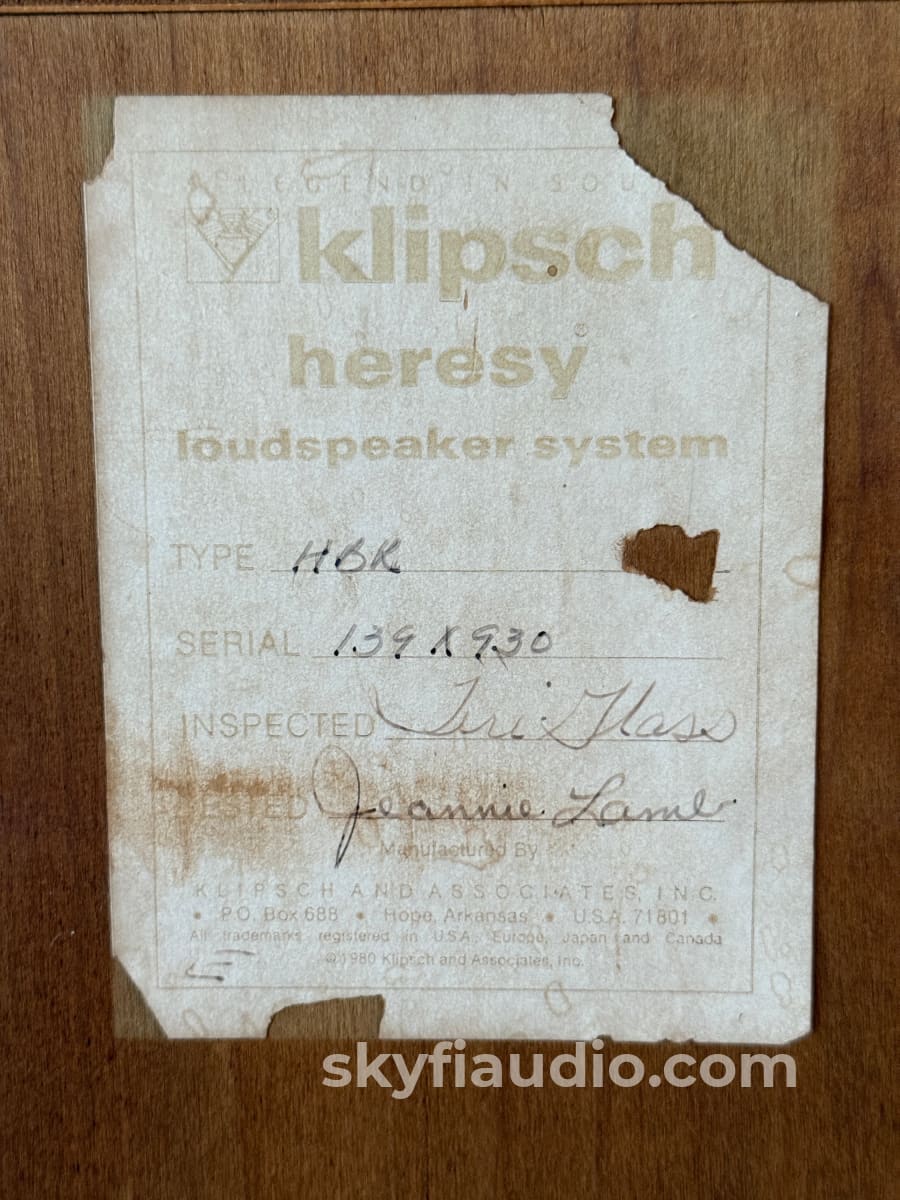 A LEGEND IN SOU
klipsch
heresy®
loudspeaker system
TYPE HBR
SERIAL 139X930
INSPECTED Teri Glass
TESTED Jeannie Lamb
Manufactured By
KLIPSCH AND ASSOCIATES, INC.
• P.O. Box 688 • Hope, Arkansas • U.S.A. 71801 •
All trademarks registered in U.S.A., Europe, Japan and Canada
©1980 Klipsch and Associates, Inc.
skyfiaudio.com